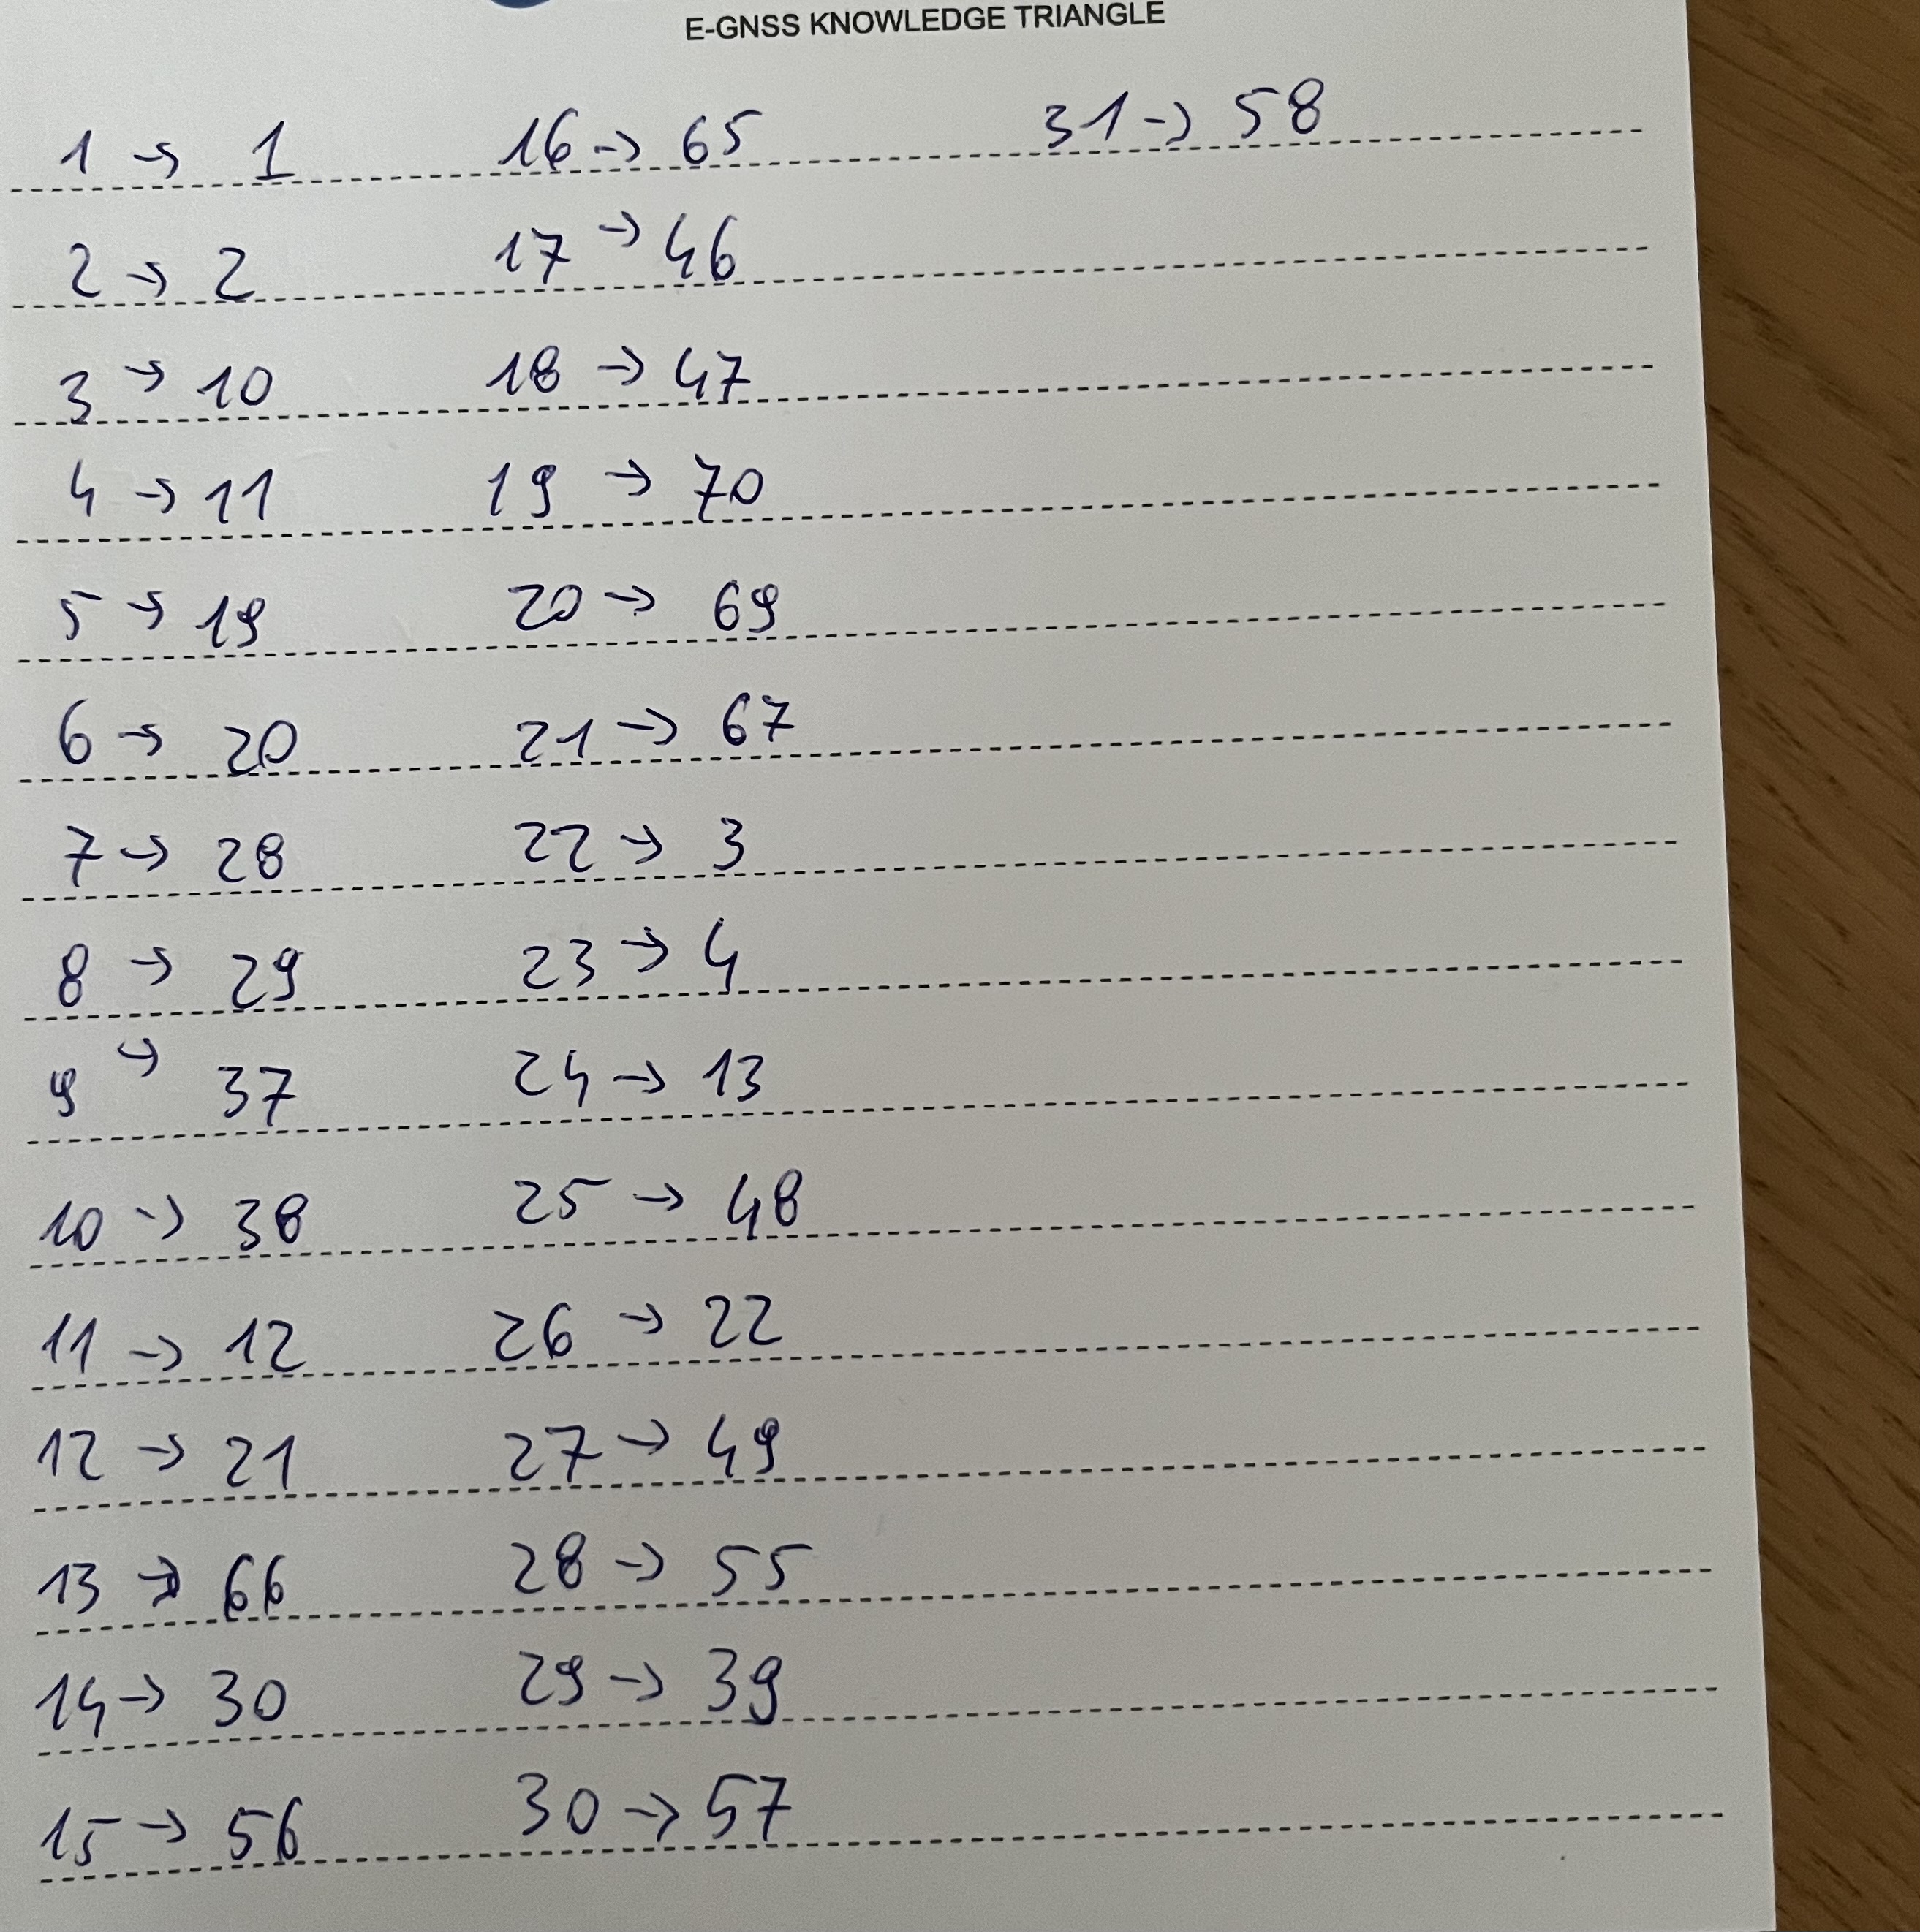 E-GNSS KNOWLEDGE TRIANGLE
1 → 1
2 → 2
3 → 10
4 → 11
5 → 19
6 → 20
7 → 28
8 → 29
9 → 37
10 → 38
11 → 12
12 → 21
13 → 66
14 → 30
15 → 56
16 → 65
17 → 46
18 → 47
19 → 70
20 → 69
21 → 67
22 → 3
23 → 4
24 → 13
25 → 48
26 → 22
27 → 49
28 → 55
29 → 39
30 → 57
31 → 58